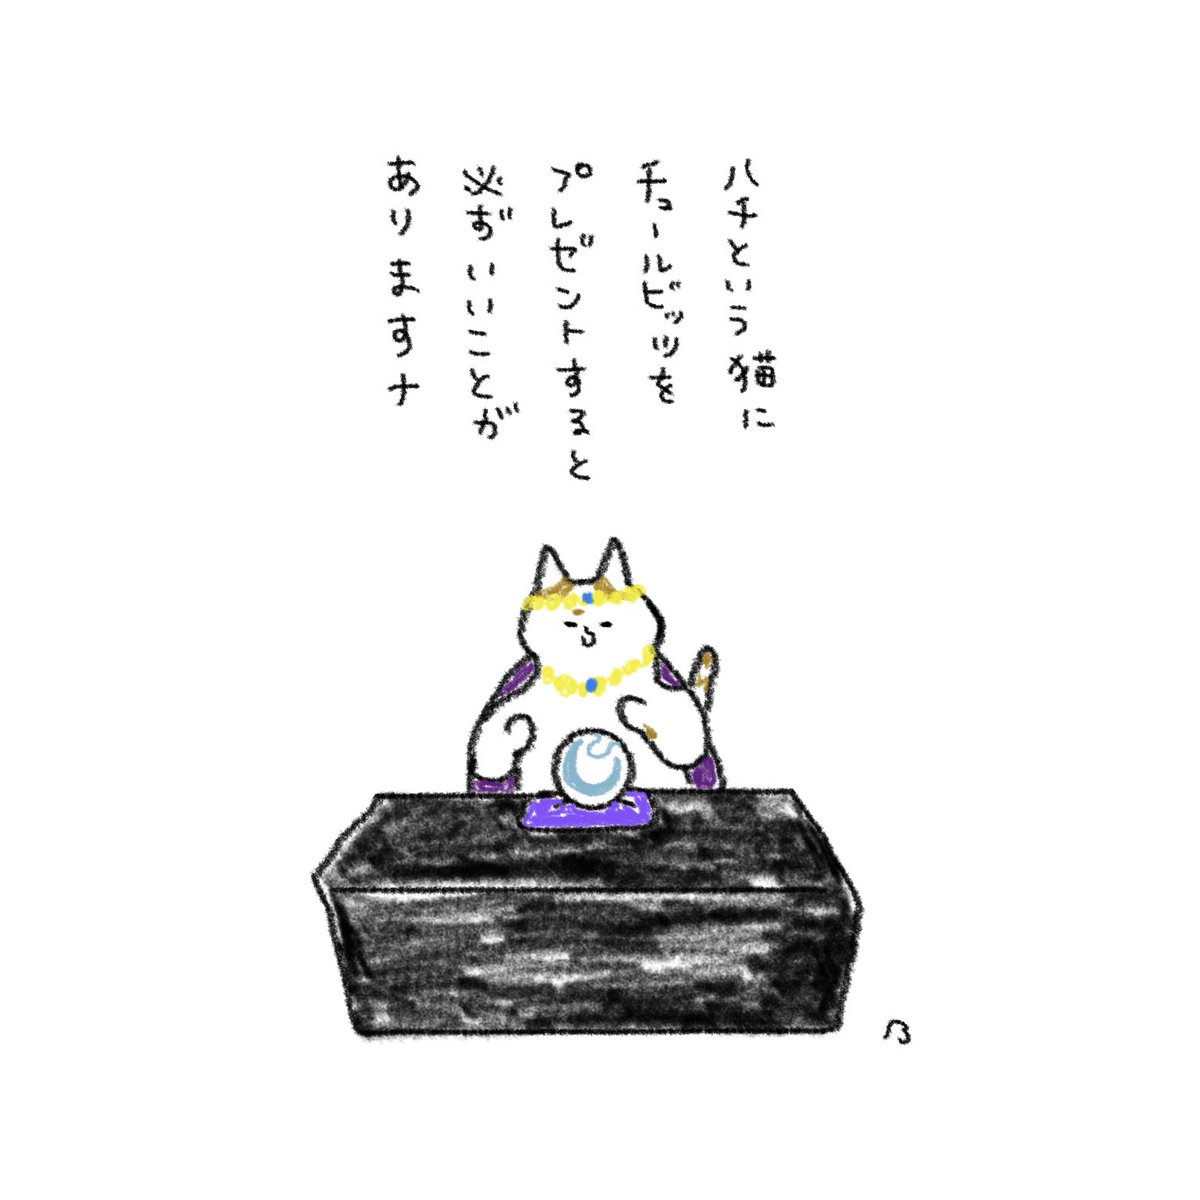 ハチという猫に
チュールビッツを
プレゼントすると
必ずいいことが
ありますナ